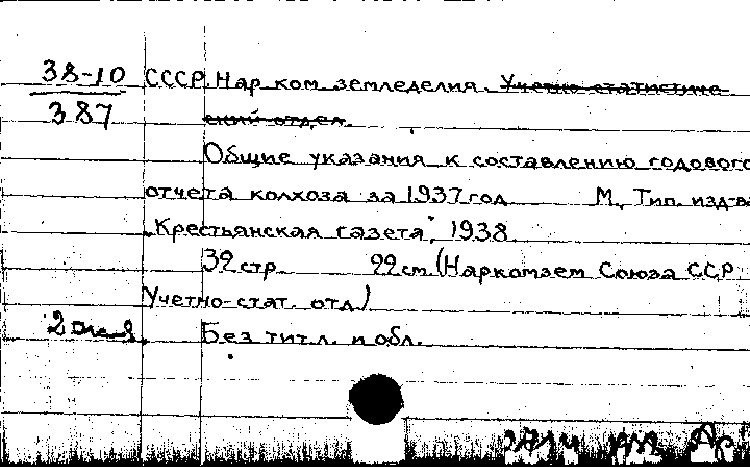 38-10 СССР. Нар. ком. земледелия. Учетно-статистиче
387 ский отдел.
Общие указания к составлению годового
отчета колхоза за 1937 год М., Тип. изд-ва
„Крестьянская газета", 1938
32 стр. 22 см. (Наркомзем Союза ССР
Учетно-стат. отд.)
Без тит. л. и обл.